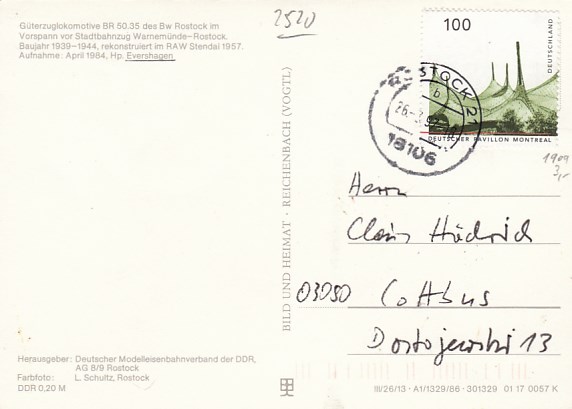 2520
Güterzuglokomotive BR 50.35 des Bw Rostock im
Vorspann vor Stadtbahnzug Warnemünde–Rostock.
Baujahr 1939–1944, rekonstruiert im RAW Stendal 1957.
Aufnahme: April 1984, Hp. Evershagen
100
DEUTSCHLAND
DEUTSCHER PAVILLON MONTREAL
ROSTOCK 21
b
18106
1909
3,-
BILD UND HEIMAT · REICHENBACH (VOGTL)
Herrn
03050 Cottbus
Dostojewski 13
Herausgeber: Deutscher Modelleisenbahnverband der DDR,
AG 8/9 Rostock
Farbfoto: L. Schultz, Rostock
DDR 0,20 M
III/26/13 · A1/1329/86 · 301329 01 17 0057 K